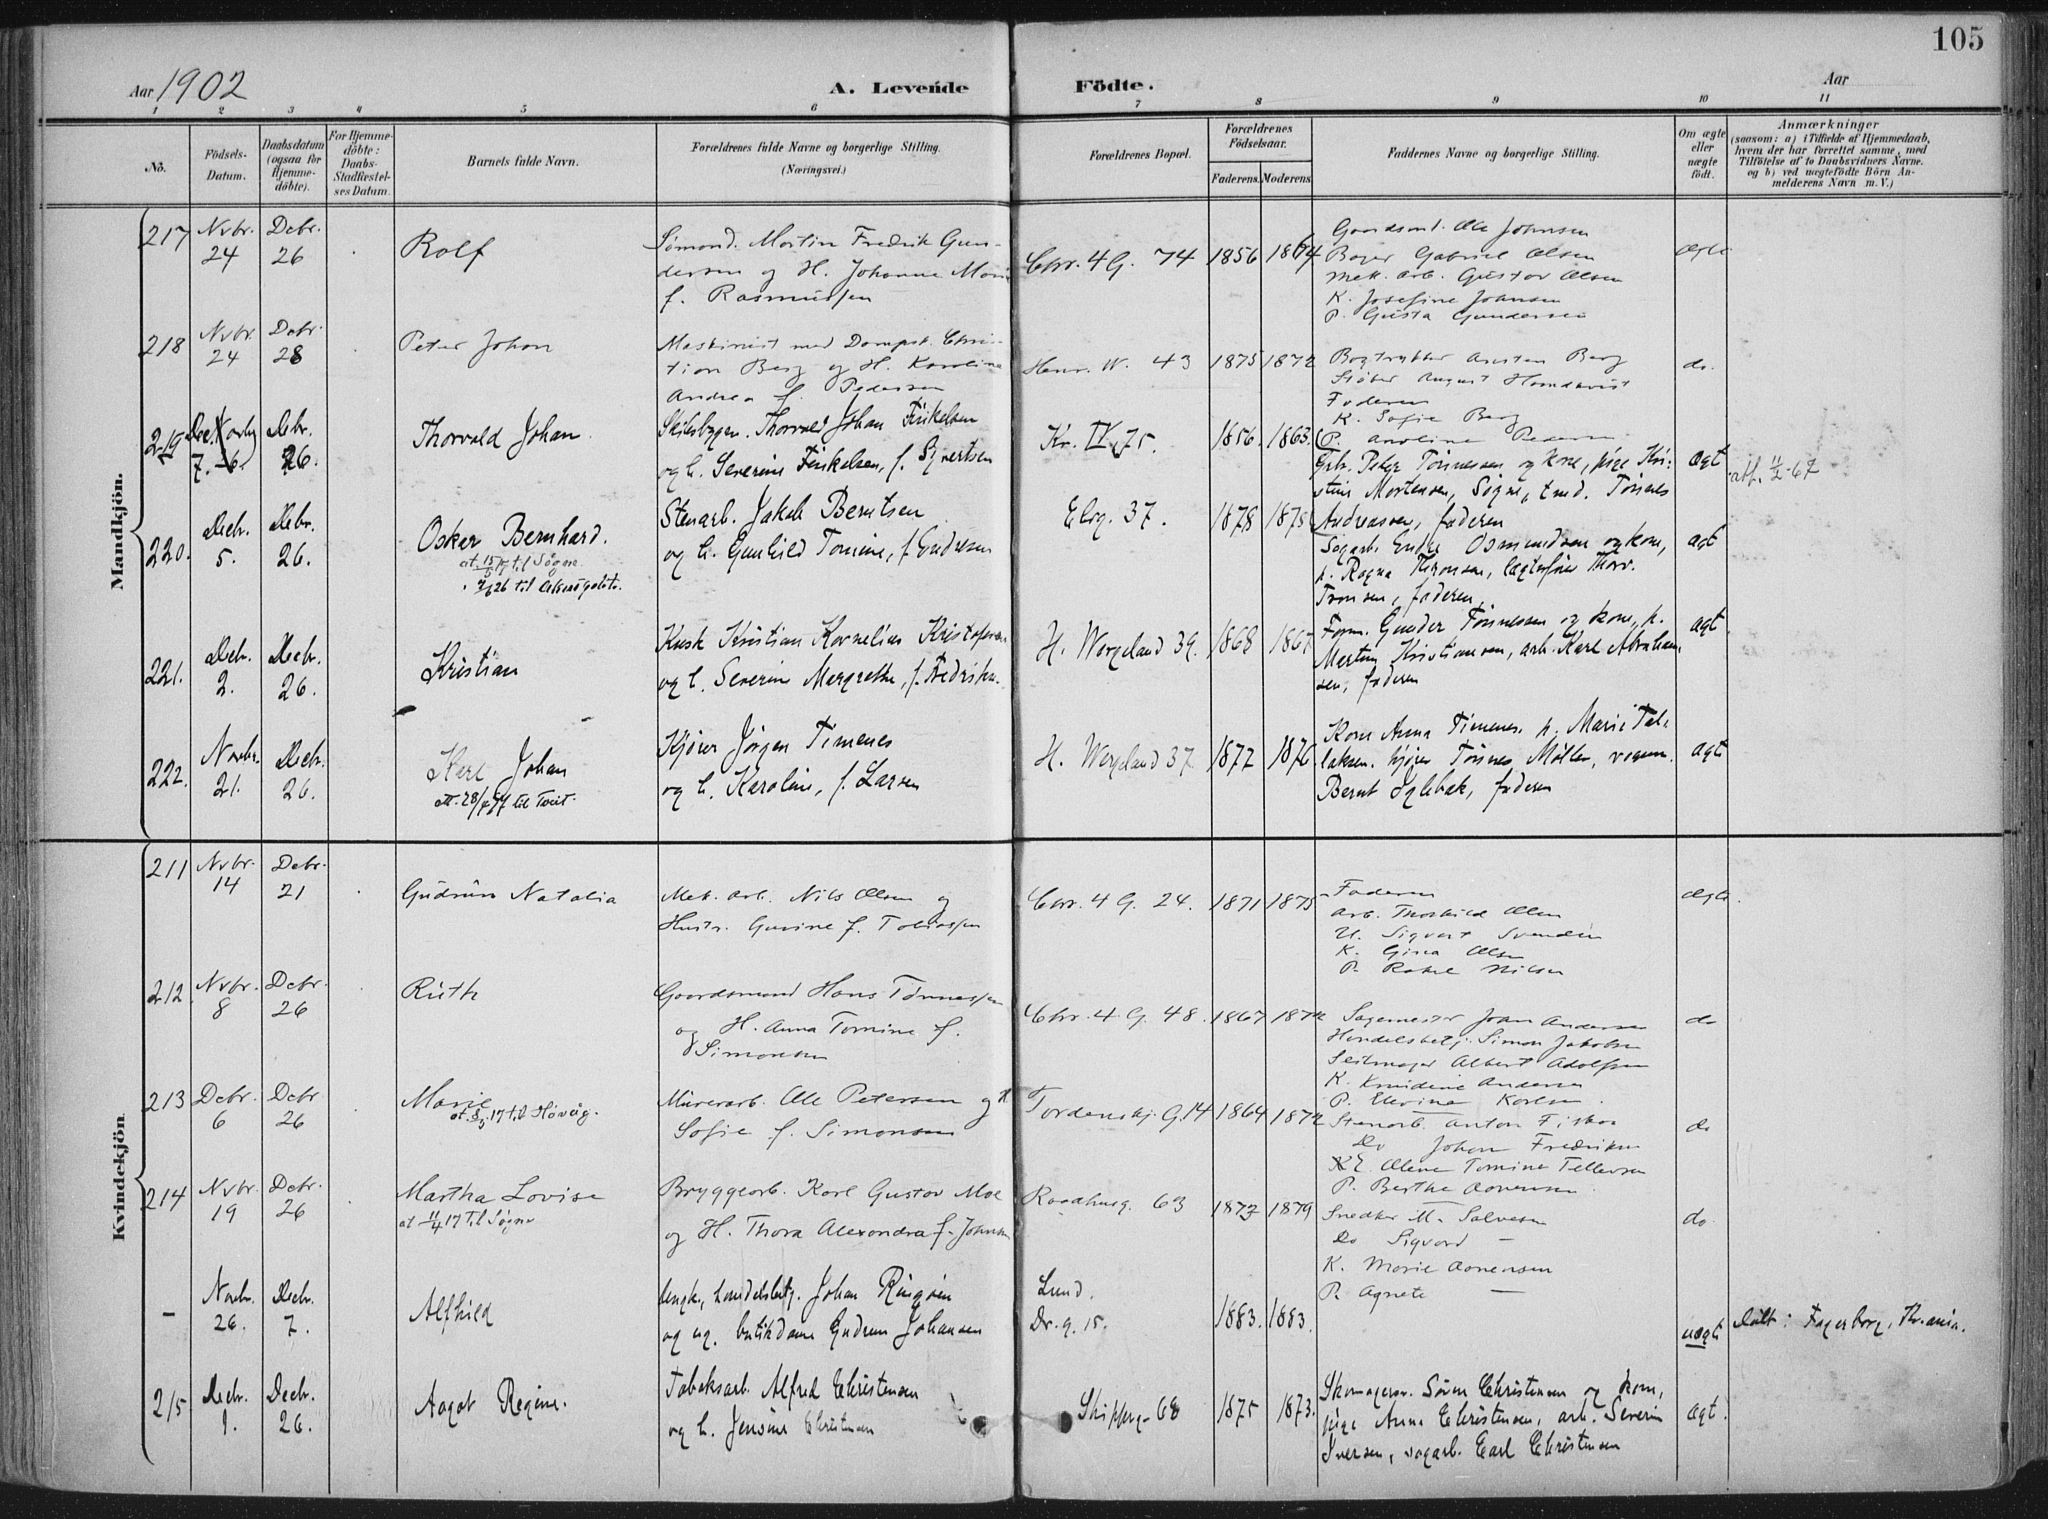 105
Aar 1902
A. Levende Födte.
Aar
1 2 3 4 5 6 7 8 9 10 11
No.
Födsels-Datum.
Daabsdatum (ogsaa for Hjemme-döbte).
For Hjemme-döbte: Daabs-Stadfæstel-ses Datum.
Barnets fulde Navn.
Forældrenes fulde Navne og borgerlige Stilling.
(Næringsvei.)
Forældrenes Bopæl.
Forældrenes Födselsaar.
Faderens. Moderens.
Faddernes Navne og borgerlige Stilling.
Om ægte eller uægte födt.
Anmærkninger
(saasom: a) i Tilfælde af Hjemmedaab,
hvem der har forrettet samme, med
Tilföielse af to Daabsvidners Navne.
og b) ved uægtefödte Börn An-
melderens Navn m. V.)
Mandkjön.
217 Nvbr. 24 Debr. 26 Rolf
Sömand. Martin Fredrik Gun-
dersen og H. Johanne Marie
f. Rasmussen
Chr. 4 G. 74 1856 1864
Gaardsm. Ole Johnsen
Bager Gabriel Olsen
Mek. arb. Gustav Olsen
K. Josefine Johnsen
P. Gusta Gundersen
Ægte
218 Nvbr. 24 Debr. 28 Peter Johan
Maskinist med Dampsk. Chris-
tian Berg og H. Karoline
Andrea f. Pedersen
Henr. W. 43 1875 1872
Bogtrykker Berg
August
Faderen
K. Sofie Berg
P. Pedersen
do.
219 Dec. 7. Debr. 26. Thorvald Johan.
Skibsbygm. Thorvald Johan Finkelsen
og h. Severine Finkelsen, f. Syvertsen
Kr. IV 75. 1856. 1863.
Peter Tönnesen og kone, pige Kri-
stine Mortensen, Søgne, Tönnes
Andreassen, faderen
ægt
att. 11/2-67
220. Decbr. 5. Debr. 26. Oskar Bernhard.
at. til Søgne.
Stenarb. Jakob Berntsen
og h. Gunhild Tomine, f. Gudresen
Elvg. 37. 1878 1878
Sagarb. Endre Osmundsen og kone,
p. Ragna Thronsen, Thorv.
Tronsen, faderen
ægt
221. Debr. 2. Decbr. 26. Kristian
Kusk Kristian Kornelius Kristofersen
og h. Severine Margrethe, f. Fredriksen
H. Wergeland 39. 1868 1867
Form. Gunder Tönnessen og kone, p.
Martine Kristiansen, arb. Karl Abraham-
sen, faderen
ægt.
222. Novbr. 21. Decbr. 26. Karl Johan
til Tveit.
Kjører Jørgen Timenes
og h. Karoline, f. Larsen
H. Wergeland 37 1877 1876
Kone Anna Timenes. p. Marie Tel-
laksen. kjører Tönnes Møller, vognm.
Bernt Iglebæk, faderen
ægt
Kvindekjön
211 Nvbr. 14 Debr. 21 Gudrun Natalia
Mek. arb. Nils Olsen og
Hustr. Gurine f. Tobiassen
Chr. 4 G. 24. 1871 1875
Faderen
Arb. Thorkild Olsen
U. Sigvart Svendsen
K. Gina Olsen
P. Rakel Nilsen
Ægte.
212 Nvbr. 8 Debr. 26 Ruth
Gaardsmand Hans Tønnessen
og H. Anna Tomine f.
Simonsen
Chr. 4 G. 48. 1867
Sagmester Johan Andersen
Handelsbetj. Simon Jakobsen
Seilmager Albert Adolfsen
K. Knudine Andersen
P. Karlsen.
do
213 Debr. 6 Debr 26 Marie
at 17 til Høvåg.
Murerarb. Ole Petersen og H
Sofie f. Simonsen
Tordenskj. G. 14 1864 1872
Stenarb. Anton
Do Johan Fredriksen
Olene Tomine Tellevsen
P. Berthe Aanensen.
do
214 Nvbr. 19 Debr. 26 Martha Lovise
at 11/4 17 til Søgne
Bryggearb. Karl Gustav Moe
og H. Thora Alexandra f. Johnsen
Raadhusg. 63 1873 1879
Snedker M. Salvesen
Do Sigvard —
K. Marie Aanensen
P. Agnete —
do.
— Novbr. 26. Decbr. 7. Alfhild
Ungk., handelsbetj. Johan Ringøen
og ug. butikdame Gudrun Johansen
Lund.
Dr. g. 15. 1883. 1883.
uægt
døbt i Fagerborg, Kr.ania.
215 Decbr. 1. Decbr. 26. Aagot Regine.
Tobaksarb. Alfred Christensen
og h. Jensine Christensen
Skipperg. 68 1875 1873.
Skomagersv. Søren Christensen og kone,
pige Anna Christensen, arb. Severin
Iversen, sagarb. Carl Christensen
ægt.